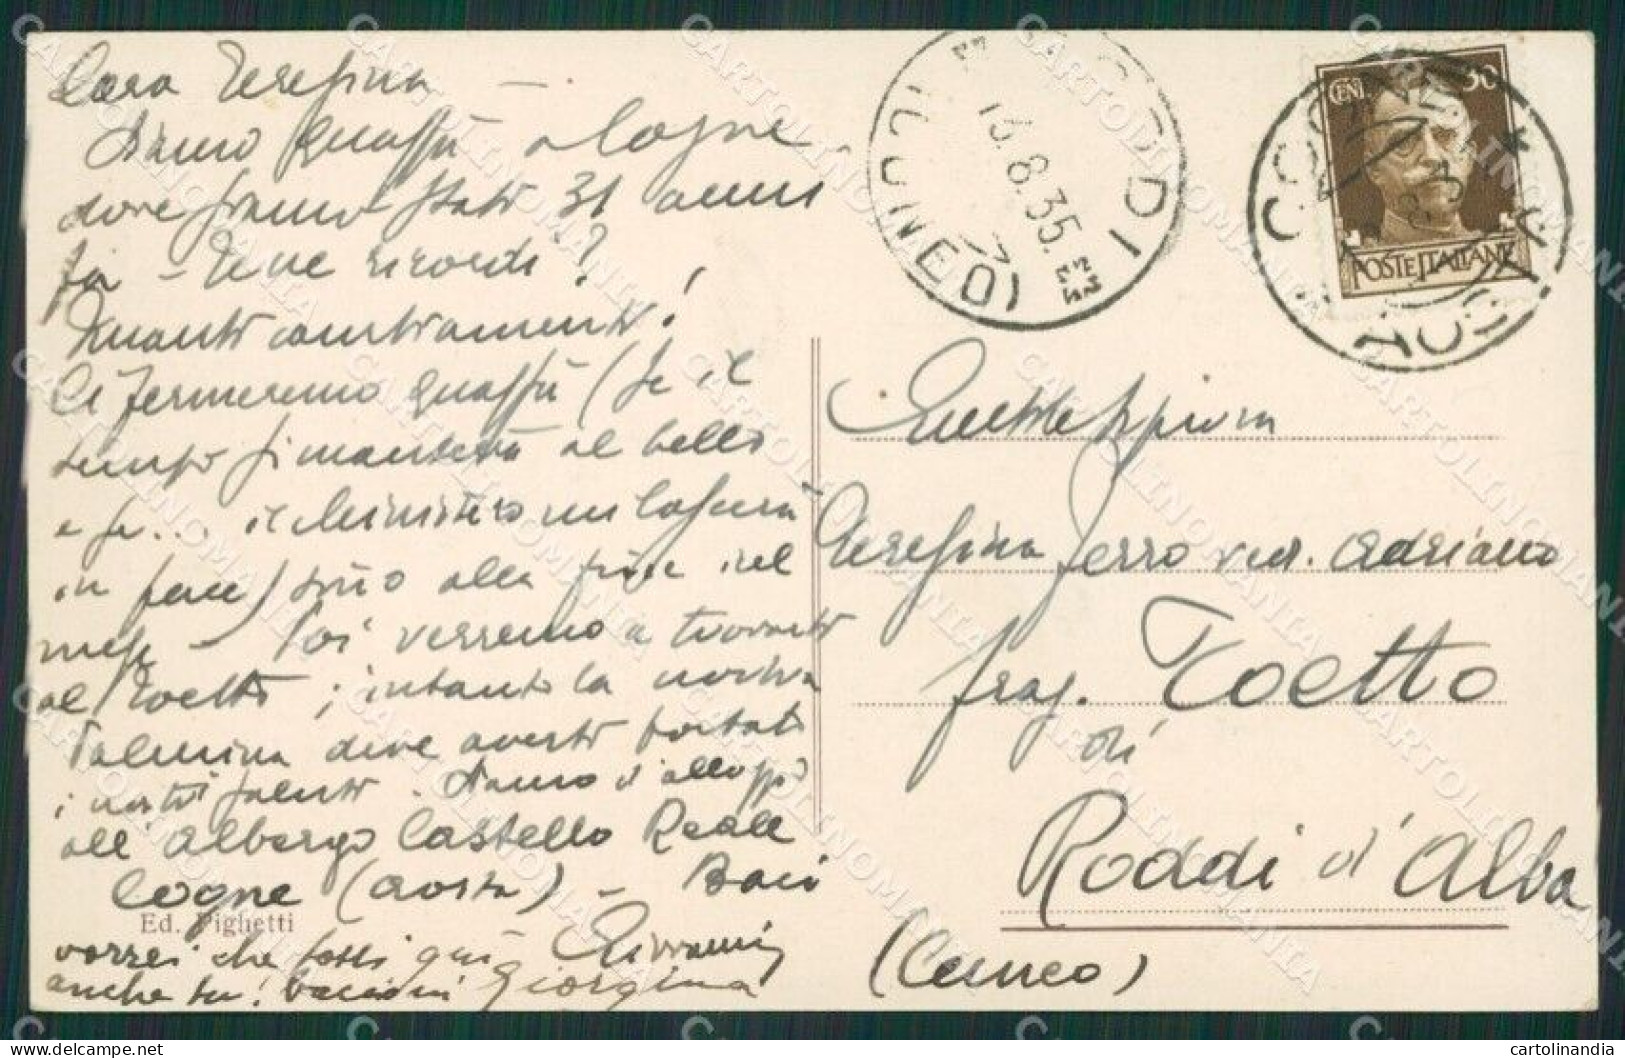 Cara Teresina —
siamo quassù a Cogne
dove siamo stati 31 anni
fa — Te ne ricordi?
Quanti cambiamenti!
Ci fermeremo quassù (se il
tempo si manterrà al bello
e se... il Ministero mi lascerà
in pace) sino alla fine del
mese — Poi verremo a trovarti
al Toetto; intanto la nostra
Palmina deve averti portati
i nostri saluti. Siamo d'alloggio
all'albergo Castello Reale
Cogne (Aosta) — Baci
Giovanni
vorrei che fossi qui
anche tu! bacioni Giorgina
Ed. Pighetti
RODDI
(CUNEO)
13.8.35.
COGNE
AOSTA
CENT 30
POSTE ITALIANE
Teresina Ferro ved. Adriano
fraz. Toetto
di
Roddi d'Alba
(Cuneo)
CARTOLINOMANIA
cartolinandia